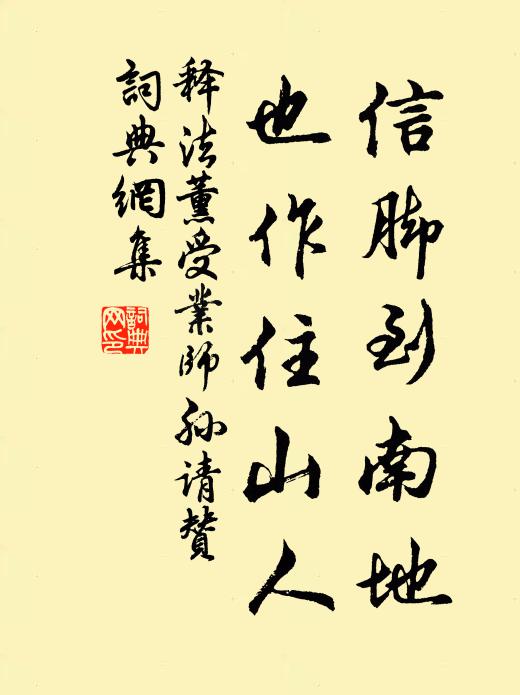 信脚到南地
也作住山人
释法薰受业师孙请赞
词典网集
词典网印